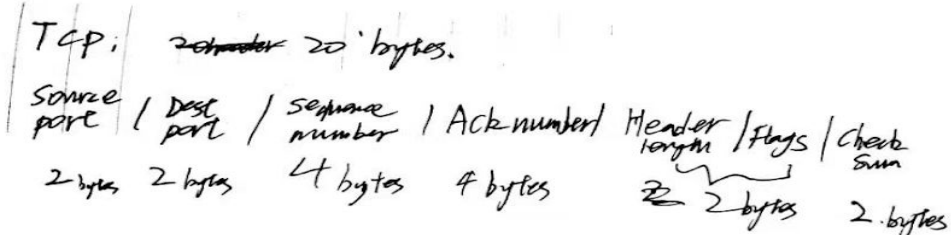 TCP: 20 header 20 bytes.
Source port / Dest port / sequence number / Ack number / Header length / Flags / Check Sum
2 bytes 2 bytes 4 bytes 4 bytes 2 2 bytes 2 bytes